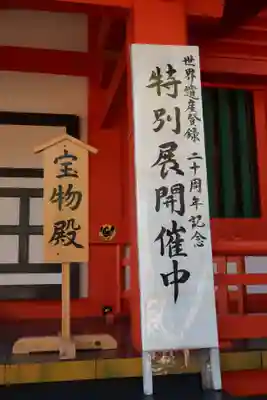 世界遺産登録 二十周年記念
特別展開催中
宝物殿